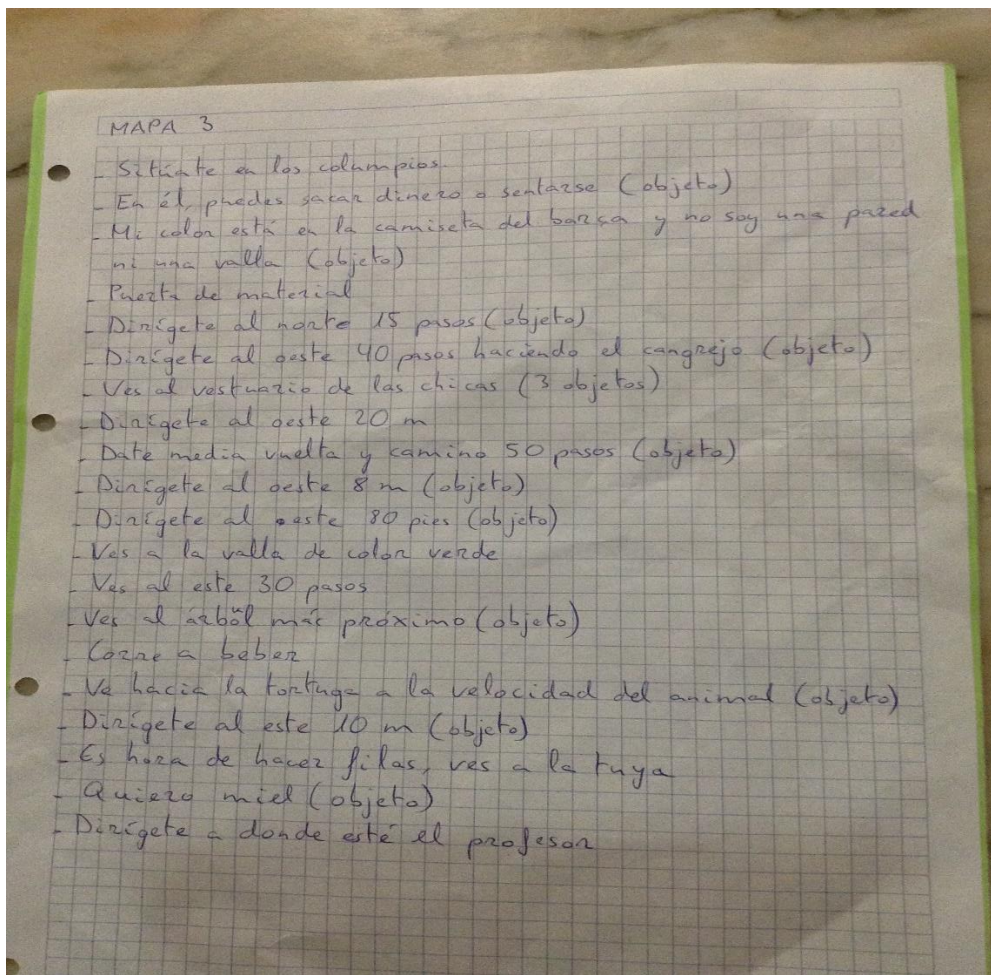 MAPA 3
- Sitúate en los columpios.
- En él, puedes sacar dinero o sentarse (objeto)
- Mi color está en la camiseta del barça y no soy una pared
ni una valla (objeto)
- Puerta de material
- Dirígete al norte 15 pasos (objeto)
- Dirígete al oeste 40 pasos haciendo el cangrejo (objeto)
- Ves al vestuario de las chicas (3 objetos)
- Dirígete al oeste 20 m
- Date media vuelta y camina 50 pasos (objeto)
- Dirígete al oeste 8 m (objeto)
- Dirígete al oeste 80 pies (objeto)
- Ves a la valla de color verde
- Ves al este 30 pasos
- Ves al árbol más próximo (objeto)
- Corre a beber
- Ve hacia la tortuga a la velocidad del animal (objeto)
- Dirígete al este 10 m (objeto)
- Es hora de hacer filas, ves a la tuya
- Quiero miel (objeto)
- Dirígete a donde esté el profesor